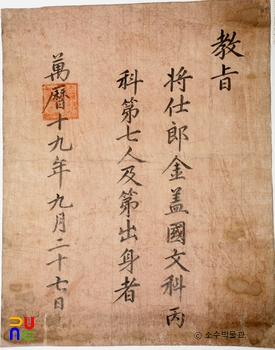 教旨
将仕郎金盖國文科丙
科第七人及第出身者
萬曆十九年九月二十七日
PUNC
© 소수박물관